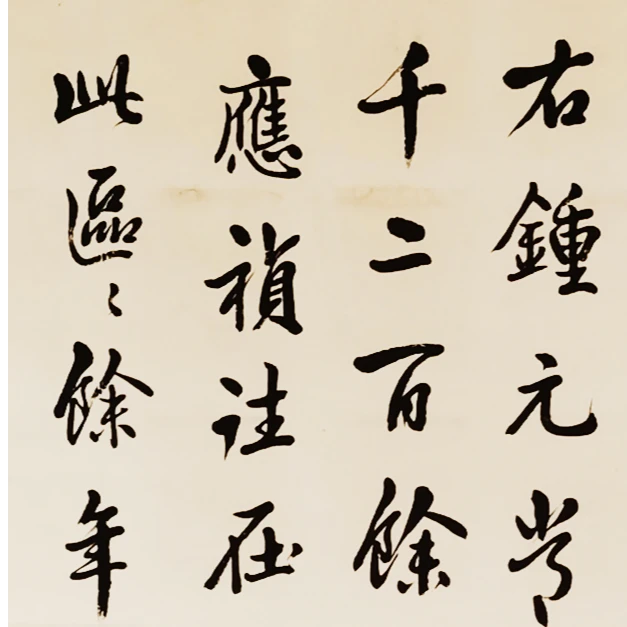 右鍾元常
千二百餘
應禎註在
此區〻餘年